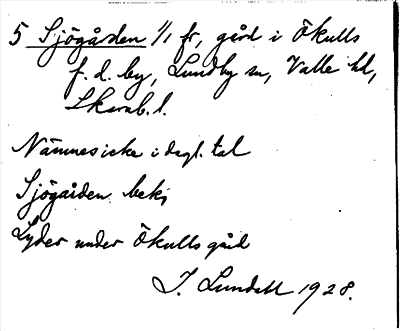 5 Sjögården 1/1 fr, gård i Ökulls
f. d. by, Lundby sn, Valle hd,
Skarab. l.
Nämnes icke i dagl. tal
Sjögården bek;
Lyder under Ökulls gård
J. Lundahl 1928.